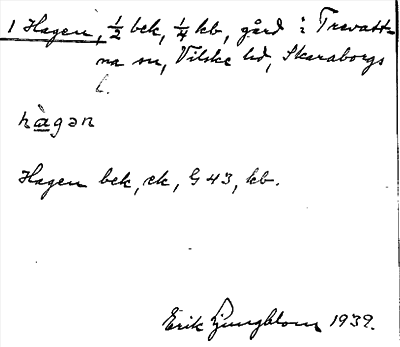 1 Hagen, ½ bek, ¼ kb, gård i Trevatt-
na sn, Vilske hd, Skaraborgs
l.
hàgən
Hagen bek, ek, G 43, kb.
Erik Ljungblom 1939.